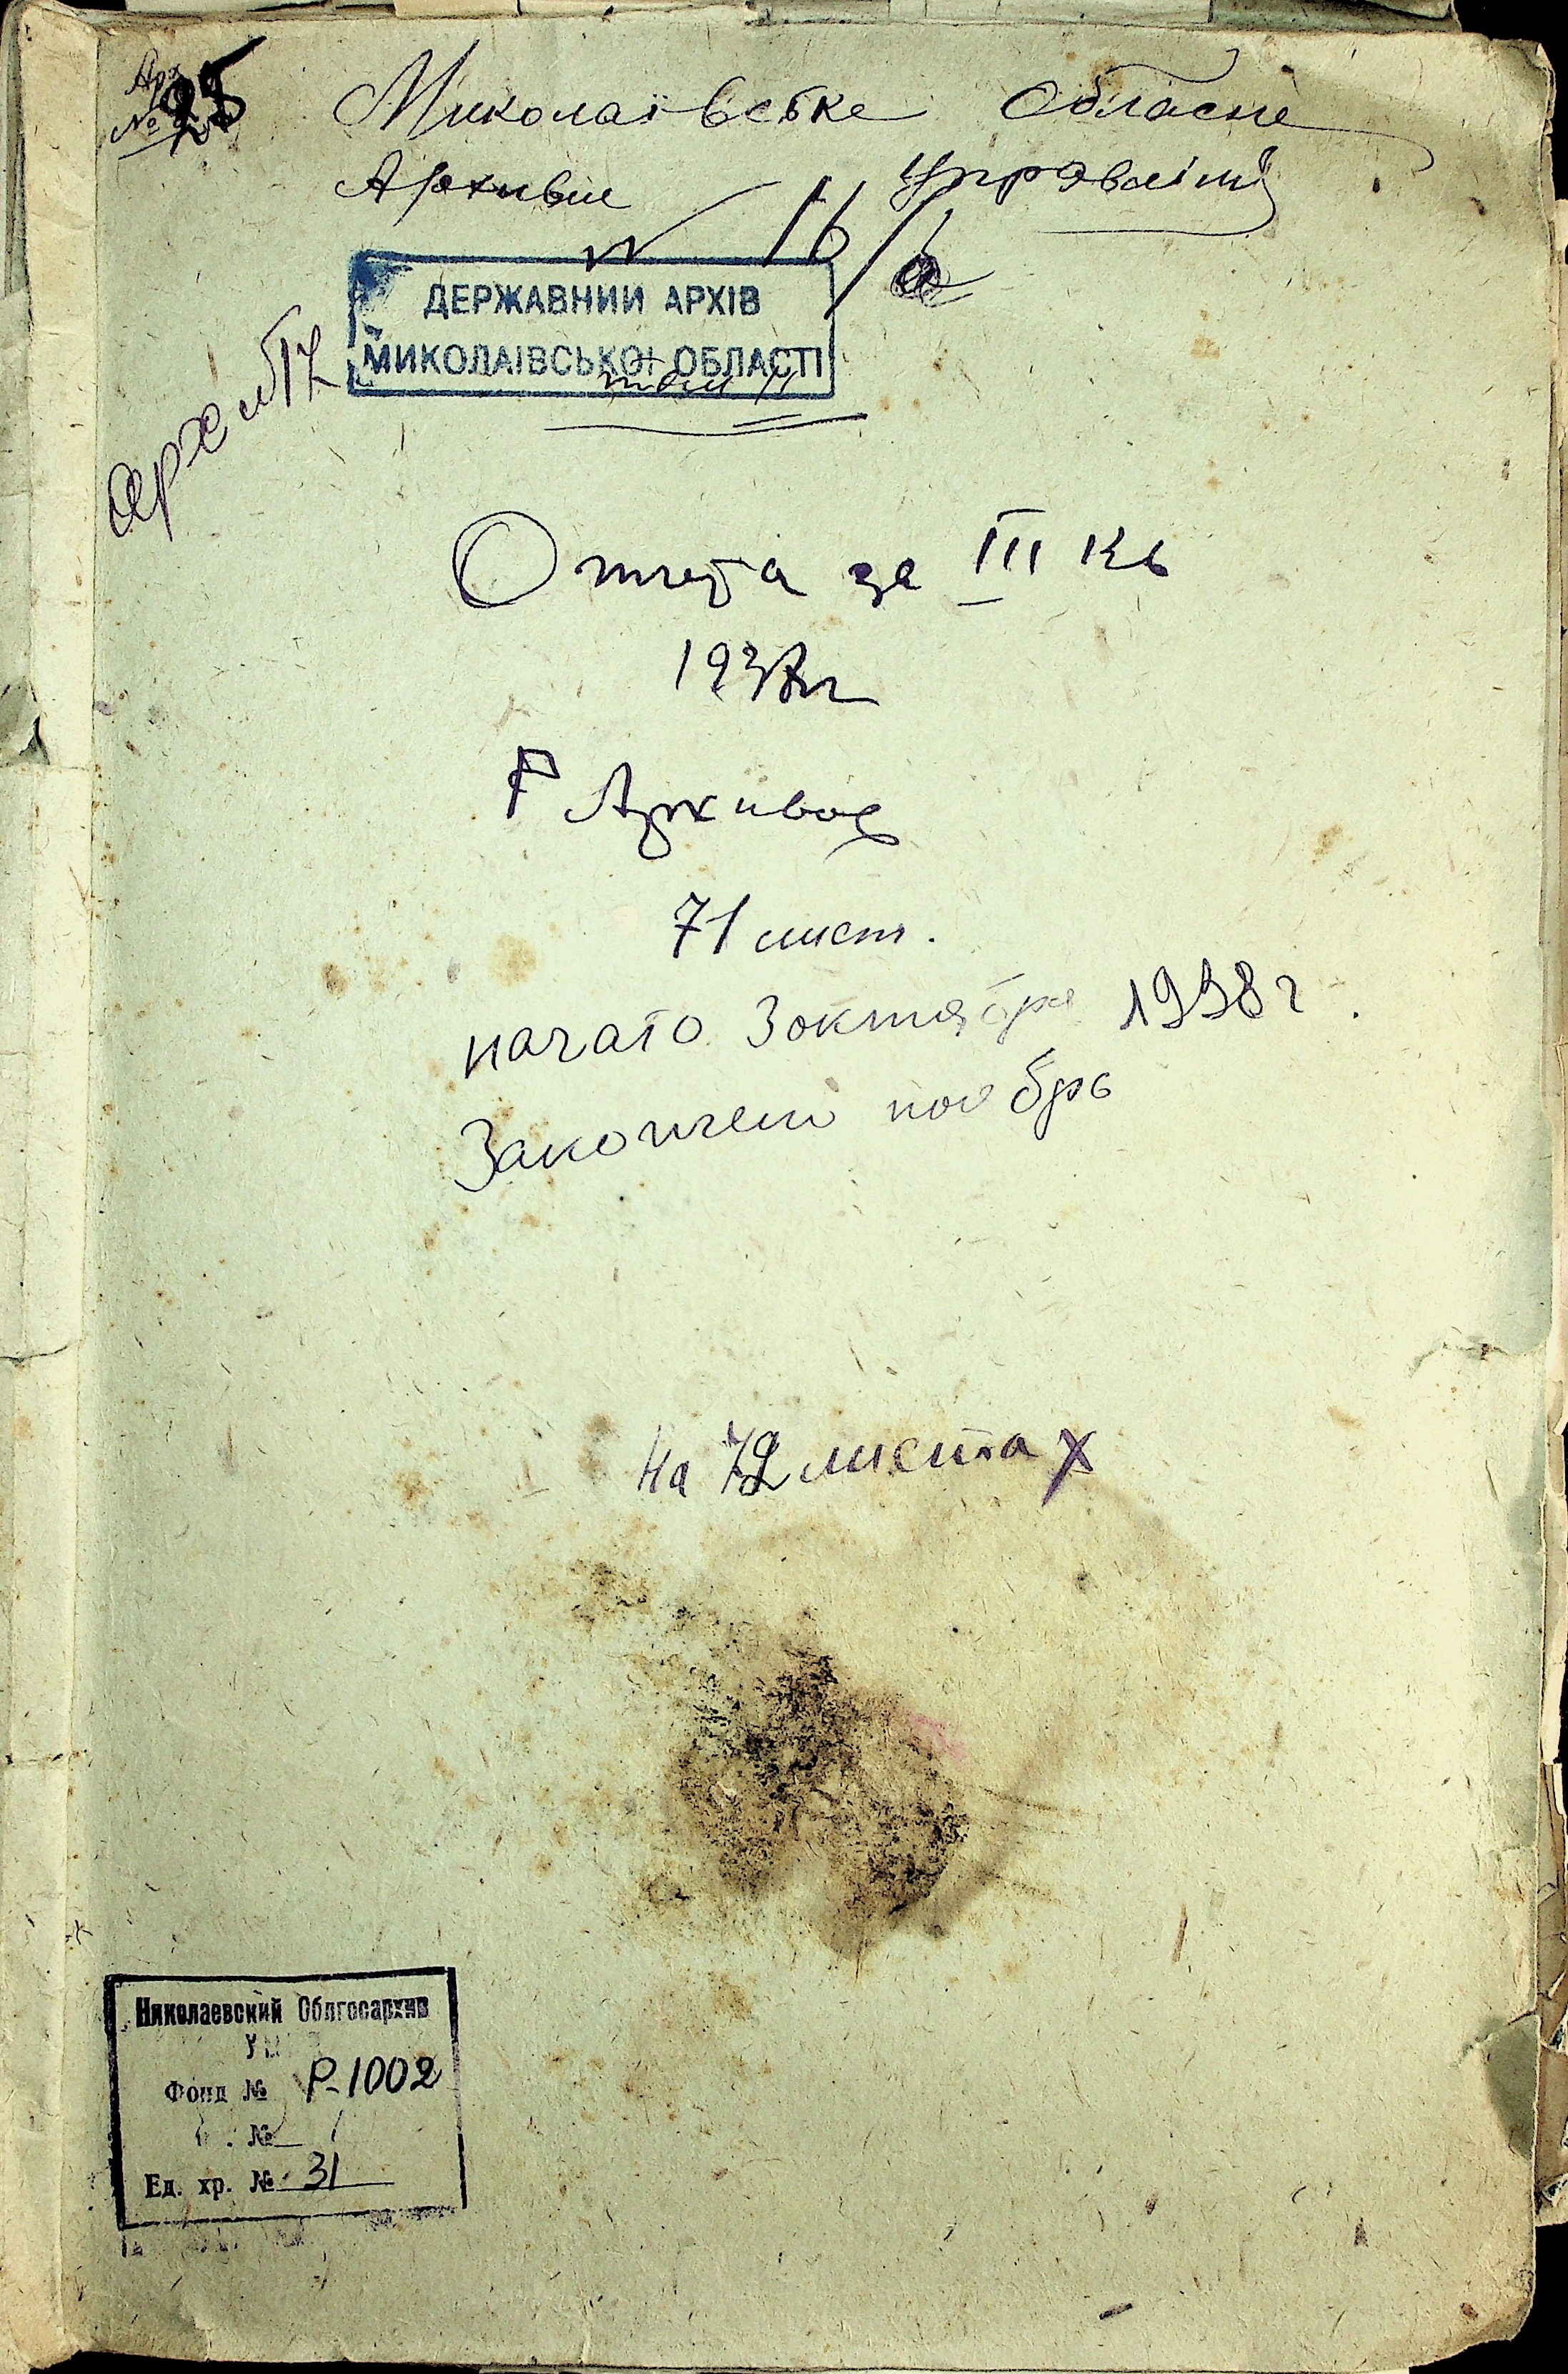 Арх
№ 25
Миколаївське Обласне
Архивне Управління
№ 16/
ДЕРЖАВНИЙ АРХІВ
МИКОЛАЇВСЬКОЇ ОБЛАСТІ
том II
Отчета за III Кв
1938г
Г Архивов
71 лист.
начато 3 октября 1938 г.
Закончено ноябрь
На 72 листах
Николаевский Облгосархив
Фонд № Р-1002
№ 1
Ед. хр. № 31